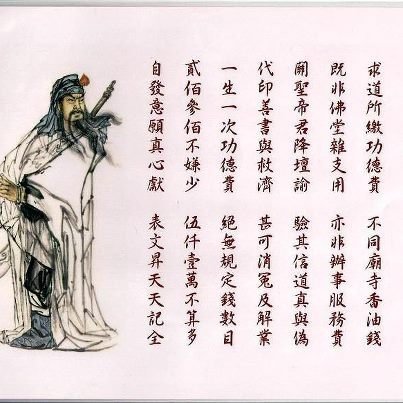 求道所繳功德費 不同廟寺香油錢
既非佛堂雜支用 亦非辦事服務費
關聖帝君降壇諭 驗其信道真與偽
代印善書與救濟 甚可消冤及解業
一生一次功德費 絕無規定錢數目
貳佰參佰不嫌少 伍仟壹萬不算多
自發意願真心獻 表文昇天天記全